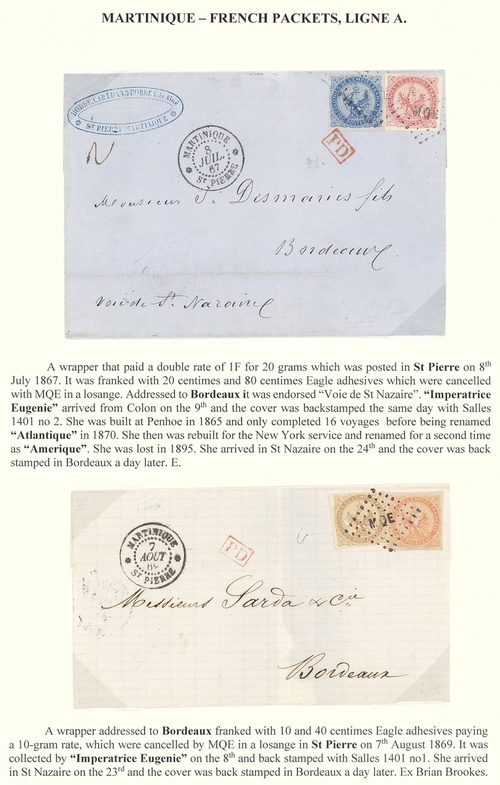 MARTINIQUE – FRENCH PACKETS, LIGNE A.
ST PIERRE MARTINIQUE
MQE
PD
MARTINIQUE
8
JUIL.
67
ST PIERRE
Monsieur S. Desmaries fils
Bordeaux
Voie de St. Nazaire
A wrapper that paid a double rate of 1F for 20 grams which was posted in St Pierre on 8th
July 1867. It was franked with 20 centimes and 80 centimes Eagle adhesives which were cancelled
with MQE in a losange. Addressed to Bordeaux it was endorsed “Voie de St Nazaire”. “Imperatrice
Eugenie” arrived from Colon on the 9th and the cover was backstamped the same day with Salles
1401 no 2. She was built at Penhoe in 1865 and only completed 16 voyages before being renamed
“Atlantique” in 1870. She then was rebuilt for the New York service and renamed for a second time
as “Amerique”. She was lost in 1895. She arrived in St Nazaire on the 24th and the cover was back
stamped in Bordeaux a day later. E.
MARTINIQUE
7
AOUT
ST PIERRE
PD
MQE
Messieurs Sarda & Cie
Bordeaux
A wrapper addressed to Bordeaux franked with 10 and 40 centimes Eagle adhesives paying
a 10-gram rate, which were cancelled by MQE in a losange in St Pierre on 7th August 1869. It was
collected by “Imperatrice Eugenie” on the 8th and back stamped with Salles 1401 no1. She arrived
in St Nazaire on the 23rd and the cover was back stamped in Bordeaux a day later. Ex Brian Brookes.